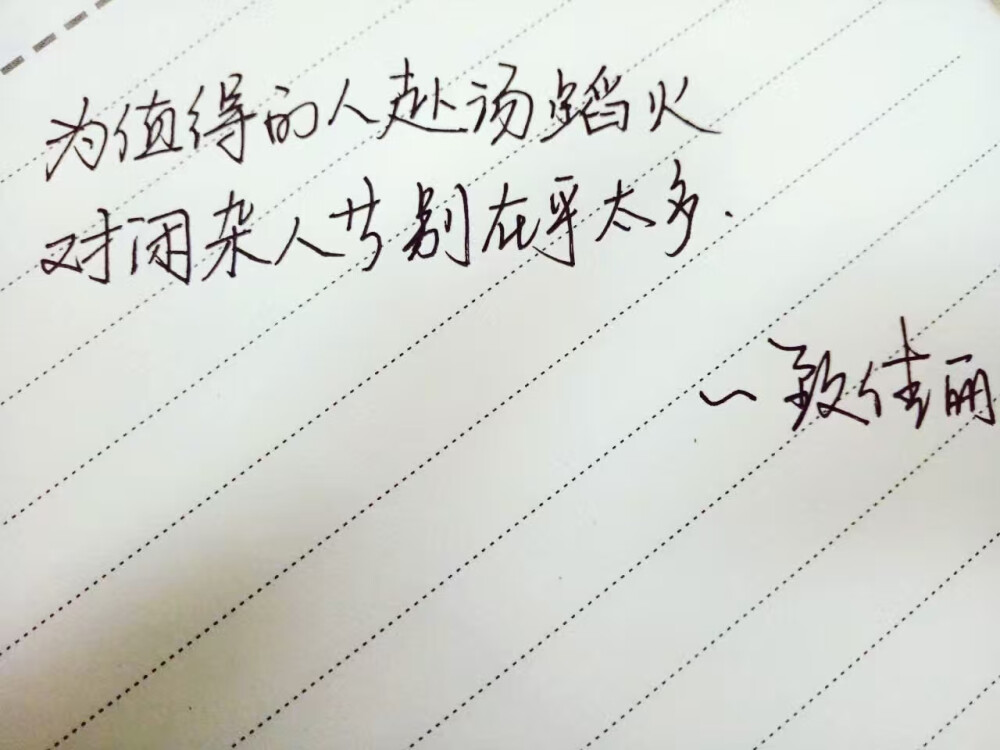 为值得的人赴汤蹈火
对闲杂人等别在乎太多.
~致佳丽